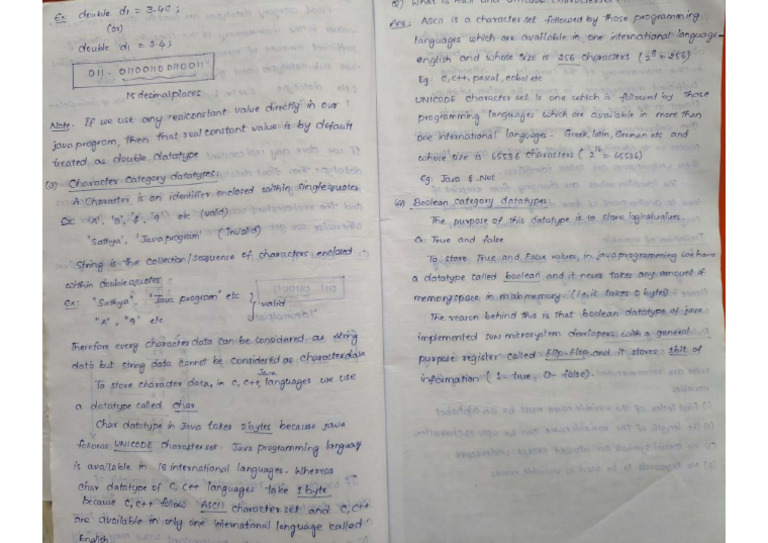 Ex: double d1 = 3.45 ;
(or)
double d1 = 3.4 ;
011. 0110011001100 11
15 decimal places.
Note: If we use any real constant value directly in our
java program, then that real constant value is by default
treated as double datatype
(3) Character Category datatypes:
A Character is an identifier enclosed within single quotes.
Ex: 'A', '9', '$', 'g' etc (valid)
'Sathya', 'Java program' (Invalid)
String is the collection/sequence of characters enclosed
within double quotes :
Ex: "Sathya", "Java program" etc
"A", "9" etc
valid
Therefore every character data can be considered as string
data but string data cannot be considered as character data
To store character data, in C, C++, Java languages we use
a datatype called char
Char datatype in Java takes 2 bytes because java
follows UNICODE character set. Java programming language
is available in 18 international languages. Whereas
char datatype of C, C++ languages take 1 byte
because C, C++ follows ASCII character set and C, C++
are available in only one international language called
English.
Ans: ASCII is a character set followed by those programming
languages which are available in one international language
english and whose size is 256 characters (2^8 = 256)
Eg. C, C++, pascal, cobol etc
UNICODE character set is one which is followed by those
programming languages which are available in more than
one international languages. Greek, latin, German etc and
whose size is 65536 characters (2^16 = 65536)
Eg. Java & .Net
Boolean Category datatypes:
The purpose of this datatype is to store logical values.
Ex: True and false
To store True and False values, in java programming we have
a datatype called boolean and it never takes any amount of
memory space in main memory (i.e, it takes 0 bytes)
The reason behind this is that boolean datatype of java
implemented sun microsystem developers with a general
purpose register called Flip-Flop and it stores 1bit of
information (1- true, 0- false).